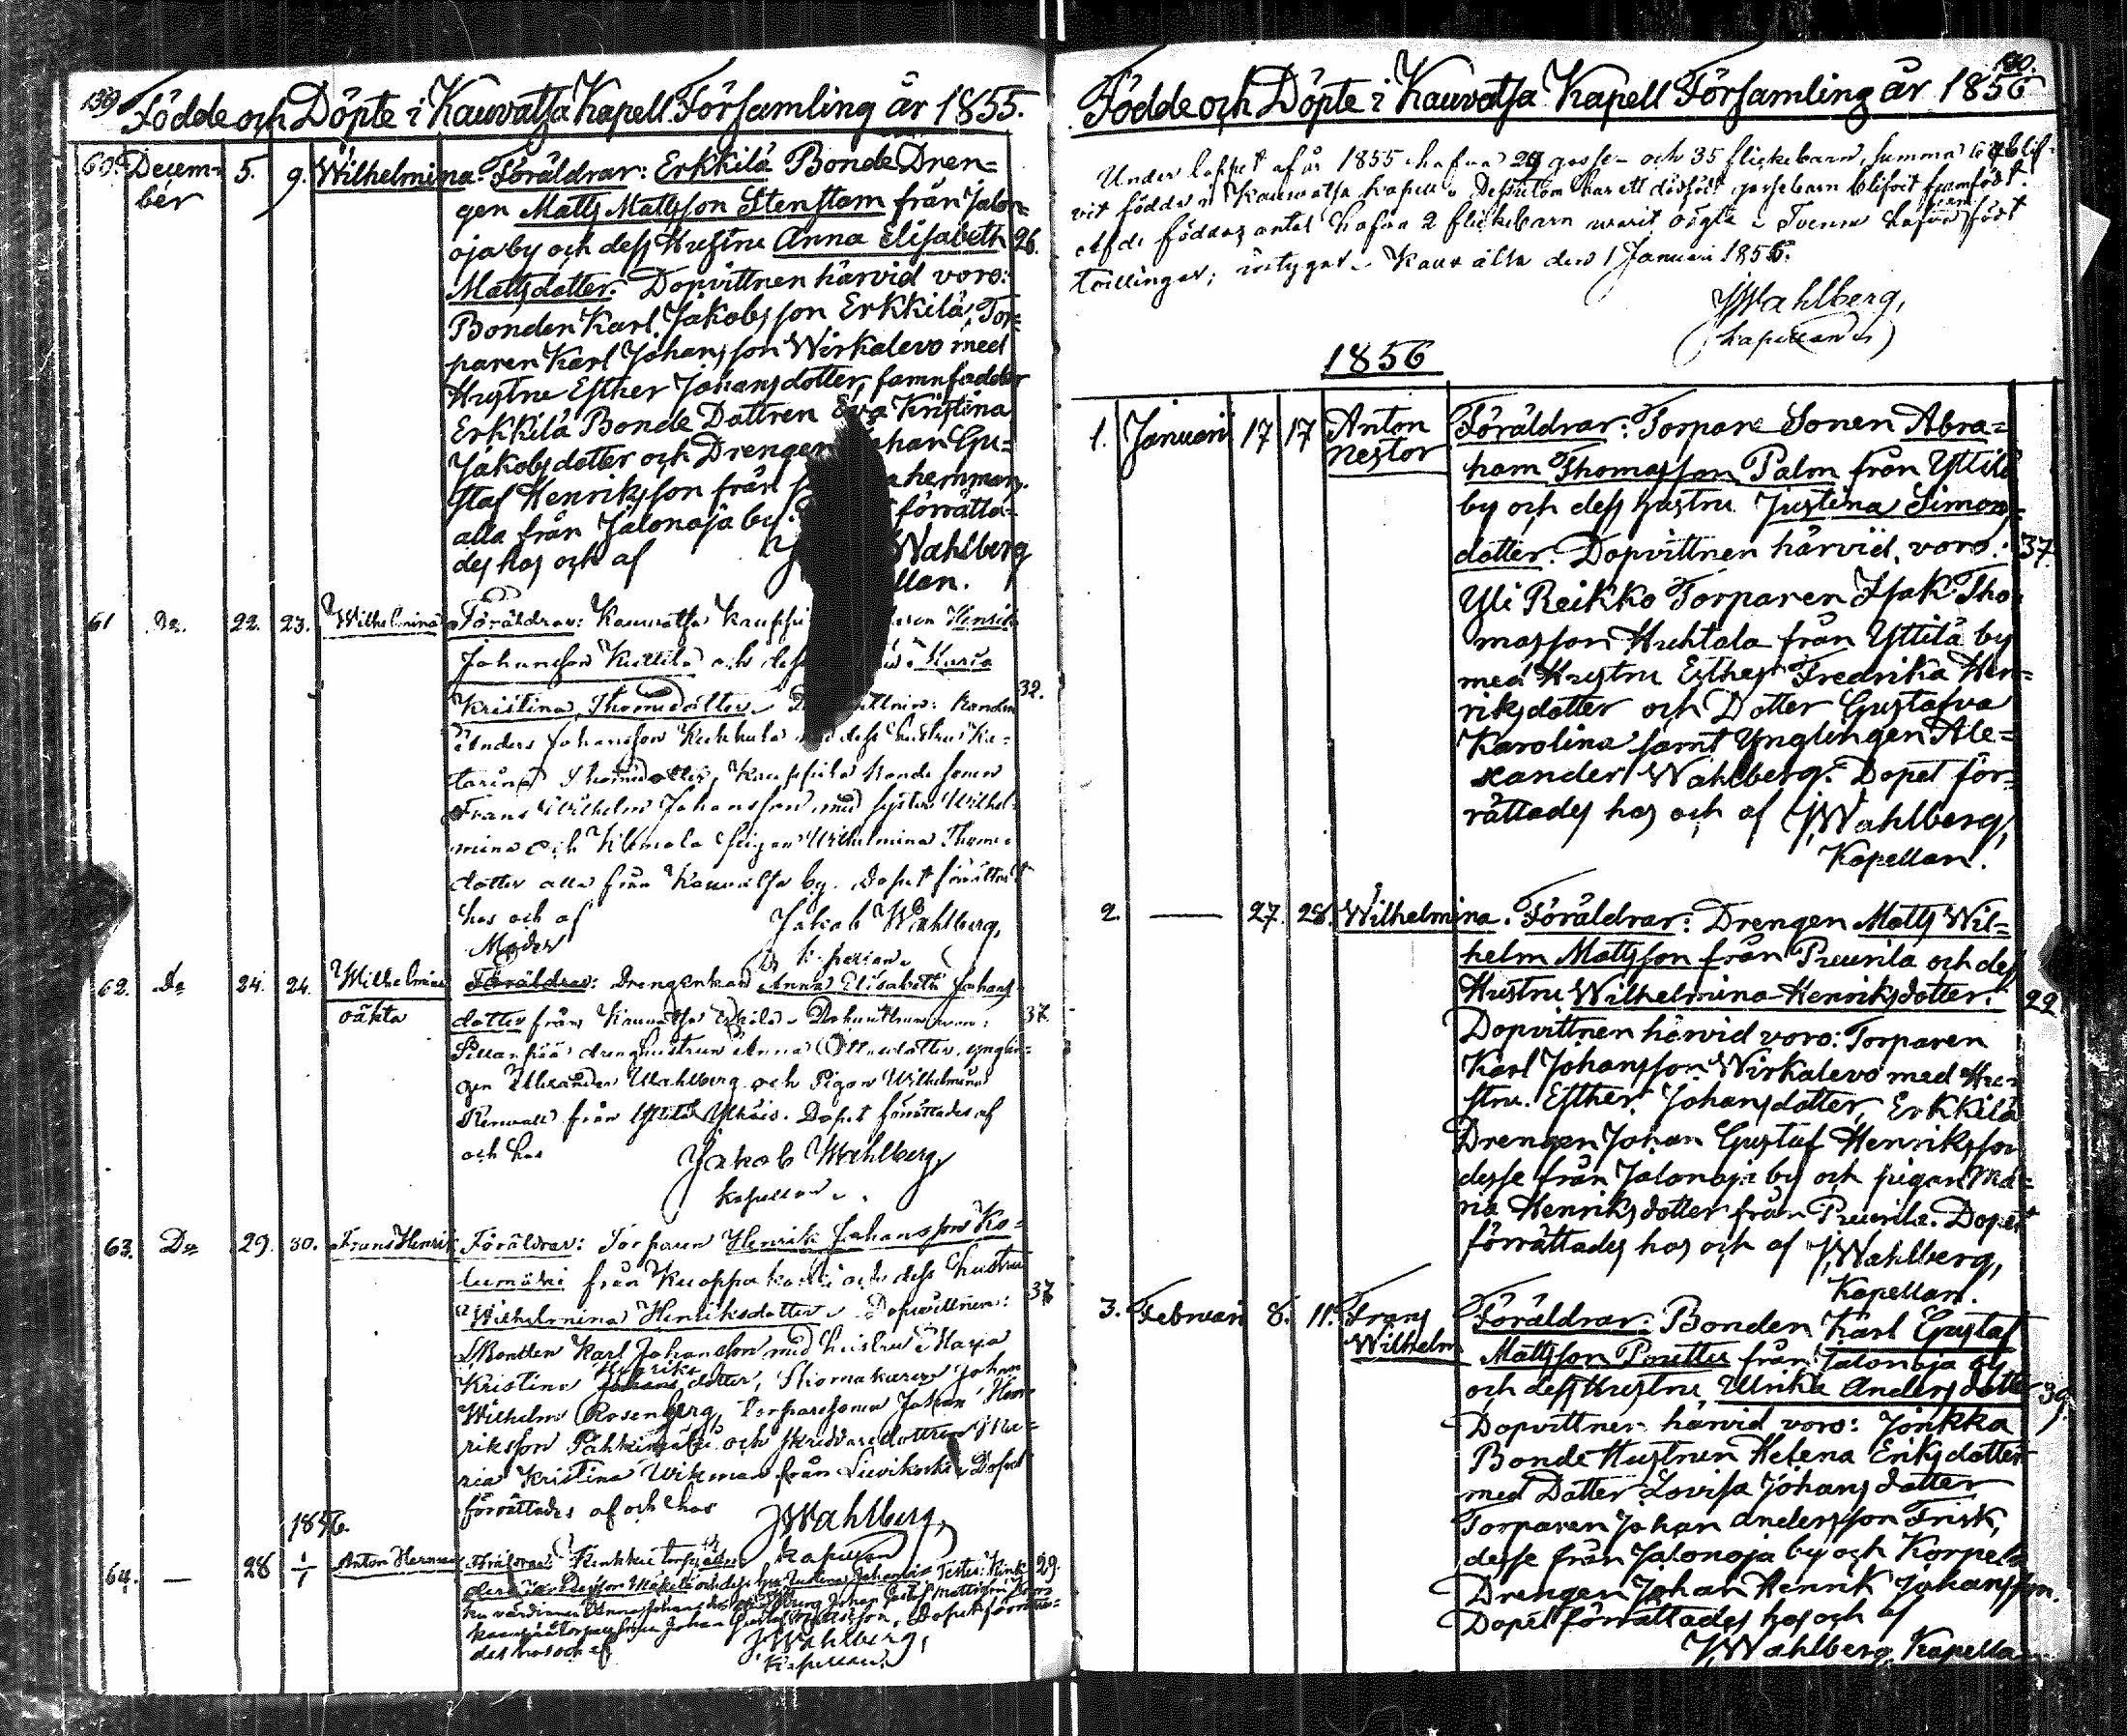 139
Födde och Döpte i Kauvatsa Kapell Församling år 1855.
60. Decem= 5. 9. Wilhelmina. Föräldrar: Erkkilä Bonde Dren=
ber gen Matts Matsson Stenstam från Jalon=
oja by och dess Hustru Anna Elisabeth 26.
Mattsdotter. Dopvittnen härvid voro:
Bonden Karl Jakobsson Erkkilä, Tor=
paren Karl Johansson Wirkalevo med
Hustru Esther Johansdotter, samnfadder
Erkkilä Bonde Dottren Eva Kristina
Jakobsdotter och Drengen Johan Gu=
staf Henriksson från hemman.
alla från Jalonoja by. förrätta=
des hos och af Wahlberg
llan.
61 Do. 22. 23. Wilhelmina Föräldrar: Kauvatsa Henrik
Johansson Kuttila och dess Maria
Kristina Thomedotter. 32.
Anders Johansson dess hustru Ka=
tarina Thomedotter, Bonde sonen
Frans Wilhelm Johansson med syster Wilhel=
mina och pigan Wilhelmina Thome=
dotter alla från Kauvatsa by. Dopet förrättat
hos och af Jakob Wahlberg,
Moder
62. Do 24. 24. Wilhelmina Föräldrar: Drengenkan Anna Elisabeth Johans=
oäkta dotter från Kauvatsa 37.
drenghustrun Anna Ottosdotter, ynglin=
gen Alexander Wahlberg och Pigan Wilhelmina
från Yttilä. Dopet förrättades af
och hos Jakob Wahlberg,
kapellan.
63. Do 29. 30. Frans Henrik Föräldrar: Torparen Henrik Johansson Ko=
lumäki från Kuoppakoski och dess hustru
Wilhelmina Henriksdotter. Dopvittnen: 37
Bonden Karl Johansson med hustru Maria
Henriks
Kristina Johans dotter, Skomakaren Johan
Wilhelm Rosenberg, torparesonen Johan Hen=
riksson och skräddaredottren Ma=
ria Kristina Wikman från Liivikoski. Dopet
förrättades af och hos JWahlberg,
1856. kapellan
64. — 28 1/1 Anton Herman Föräldrar: 29.
Johan Gustaf Mattsson. Dopet förrätta=
des hos och af JWahlberg,
Kapellan.
130.
Födde och Döpte i Kauvatsa Kapell Församling år 1856
Under loppet af år 1855 hafva 29 gosse- och 35 flickebarn, summa 64 blif=
vit födde i Kauvatsa kapell. Dessutom har ett dödfödt gossebarn blifvit framfödt.
Af de föddas antal hafva 2 flickebarn warit oägta. Tvenne hafva fram födt
tvillingar; intygar. Kauvatsa den 1 Januari 1856.
JWahlberg,
(kapellan)
1856
1. Januari 17 17 Anton Föräldrar: Torpare Sonen Abra=
Nestor ham Thomasson Palm från Yttilä
by och dess hustru Justina Simons=
dotter. Dopvittnen härvid voro: 37.
Yli Reikko Torparen Isak Tho=
masson Huhtala från Yttilä by
med Hustru Esther Fredrika Hen=
riksdotter och Dotter Gustafva
Karolina samt Ynglingen Ale=
xander Wahlberg. Dopet för=
rättades hos och af JWahlberg,
Kapellan.
2. — 27. 28. Wilhelmina. Föräldrar: Drengen Matts Wil=
helm Mattsson från Puurila och dess
Hustru Wilhelmina Henriksdotter. 22
Dopvittnen härvid voro: Torparen
Karl Johansson Wirkalevo med Hu=
stru Esther Johansdotter, Erkkilä
Drengen Johan Gustaf Henriksson
desse från Jalonoja by och pigan Ma=
ria Henriksdotter från Puurila. Dopet
förrättades hos och af JWahlberg,
Kapellan.
3. Februari 8. 11. Frans Föräldrar: Bonden Karl Gustaf
Wilhelm Mattsson Prettu från Jalonoja by
och dess Hustru Ulrika Andersdotter 39.
Dopvittnen härvid voro: Jönkka
Bonde Hustrun Helena Eriksdotter
med Dotter Lovisa Johansdotter
Torparen Johan Andersson Frisk,
desse från Jalonoja by och Korpela
Drengen Johan Henrik Johansson.
Dopet förrättades hos och af
JWahlberg, Kapellan